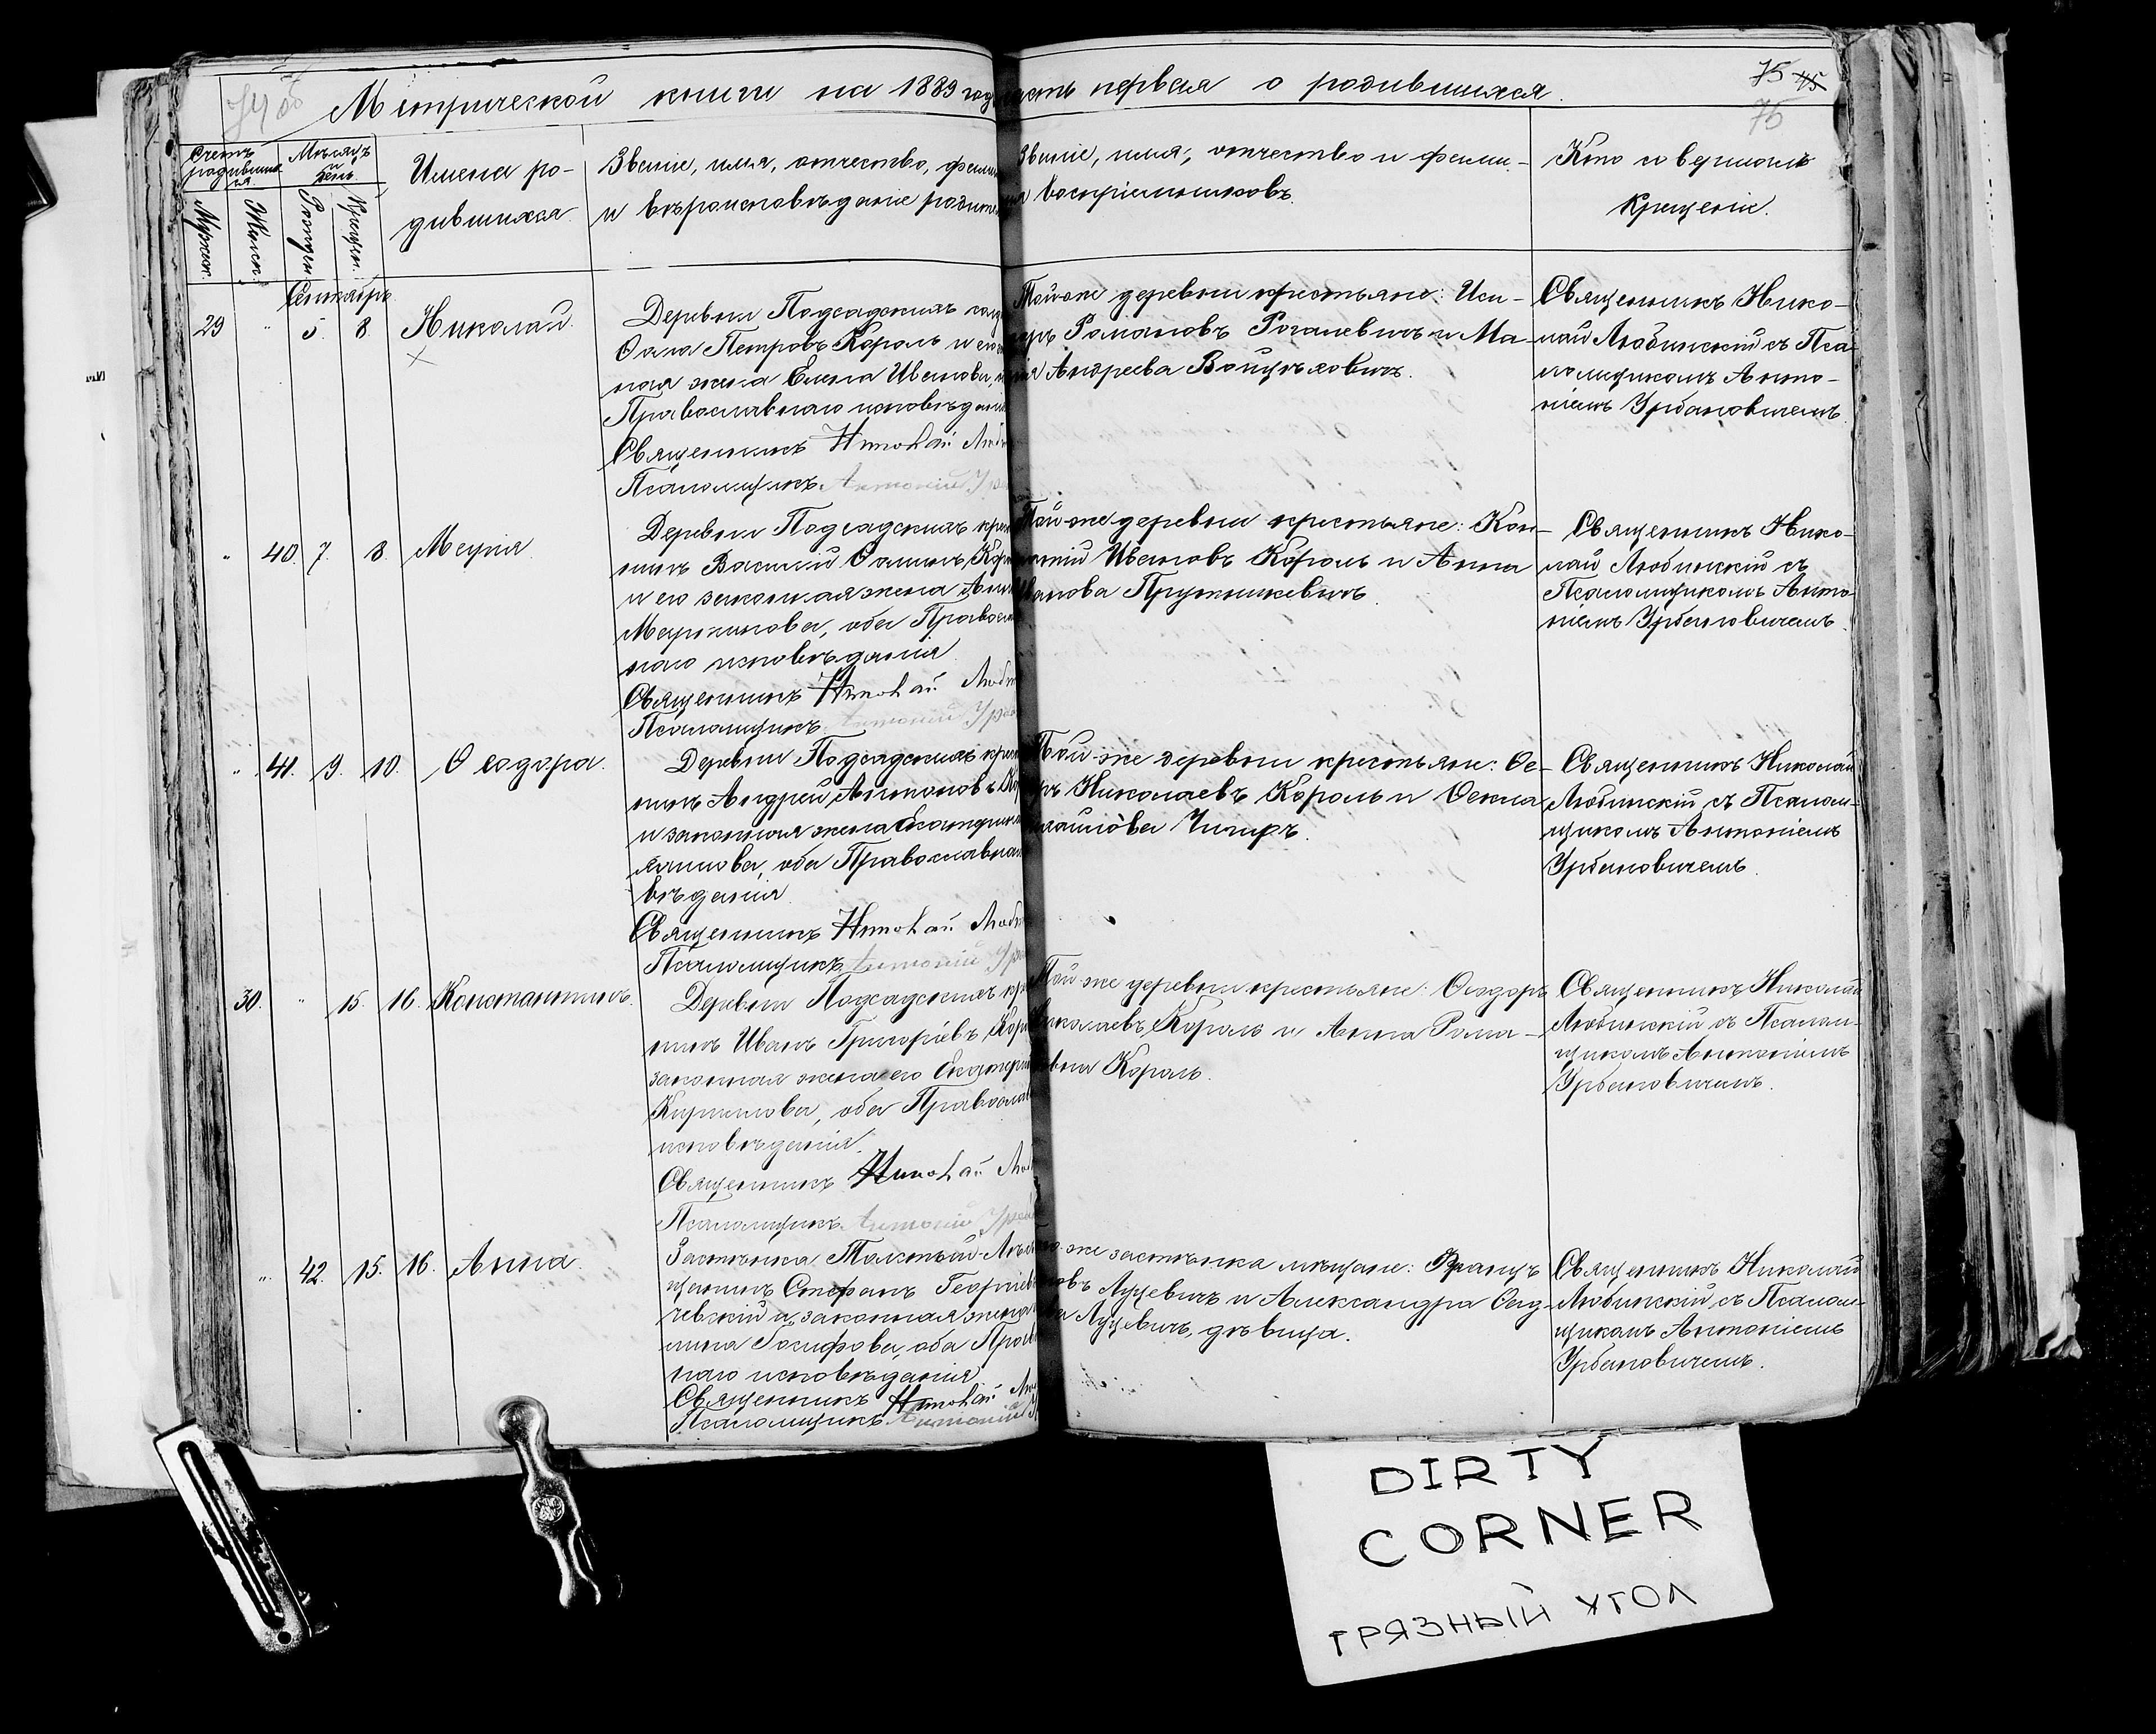 Метрической книги на 1889 годъ часть первая о родившихся.
75 45
74 об
75
Счетъ родившихся.
Мѣсяцъ и день.
Мужеск.
Женск.
Рожден.
Крещен.
Имена ро-
дившихся.
Званіе, имя, отчество, фами
и вѣроисповѣданіе родите
Званіе, имя, отчество и фами-
лія воспріемниковъ.
Кто совершалъ
крещеніе.
Сентябрь
29 " 5. 8. Николай.
Деревни Подсадскихъ
Ѳома Петровъ Король и его
ная жена Елена Иванова,
Православнаго исповѣдан
Священникъ Николай Люб
Псаломщикъ Антоній Ур
Той-же деревни крестьяне: Иси-
доръ Романовъ Рогалевичъ и Ма-
рія Андреева Войцѣховичъ.
Священникъ Нико-
лай Любинскій съ Пса-
ломщикомъ Анто-
ніемъ Урбановичемъ.
" 40. 7. 8. Марія.
Деревни Подсадскихъ крес
нинъ Василій Ѳоминъ Кор
и его законная жена Анна
Мартинова, оба Правосла
наго исповѣданія.
Священникъ Николай Люб
Псаломщикъ Антоній Урб
Той-же деревни крестьяне: Кон-
Ивановъ Король и Анна
Иванова Прутникевичъ.
Священникъ Нико-
лай Любинскій съ
Псаломщикомъ Анто-
ніемъ Урбановичемъ.
" 41. 9. 10. Ѳеодора.
Деревни Подсадскихъ крес
нинъ Андрей Антоновъ Кор
и законная жена Екатерина
оба Православнаго
вѣданія.
Священникъ Николай Люб
Псаломщикъ Антоній Ур
Той-же деревни крестьяне: Ѳе-
доръ Николаевъ Король и Ѳекла
Михайлова Чигиръ.
Священникъ Николай
Любинскій съ Псалом-
щикомъ Антоніемъ
Урбановичемъ.
30. " 15. 16. Константинъ.
Деревни Подсадскихъ кре
нинъ Иванъ Григорьевъ Кор
законная жена его Екатери
Кирилова, оба Православ
исповѣданія.
Священникъ Николай Люб
Псаломщикъ Антоній Урб
Той-же деревни крестьяне: Ѳеодоръ
Николаевъ Король и Анна Рома-
нова Король.
Священникъ Николай
Любинскій съ Псалом-
щикомъ Антоніемъ
Урбановичемъ.
" 42. 15. 16. Анна.
Застѣнка Толстый-Лѣ
щанинъ Стефанъ Георгіев
чевскій и законная жена
лина Іосифова, оба Прав
наго исповѣданія.
Священникъ Николай Лю
Псаломщикъ Антоній У
Того-же застѣнка мѣщане: Францъ
Луцевичъ и Александра Ѳад-
Луцевичъ, дѣвица.
Священникъ Николай
Любинскій съ Псалом-
щикомъ Антоніемъ
Урбановичемъ.
DIRTY
CORNER
ГРЯЗНЫЙ УГОЛ